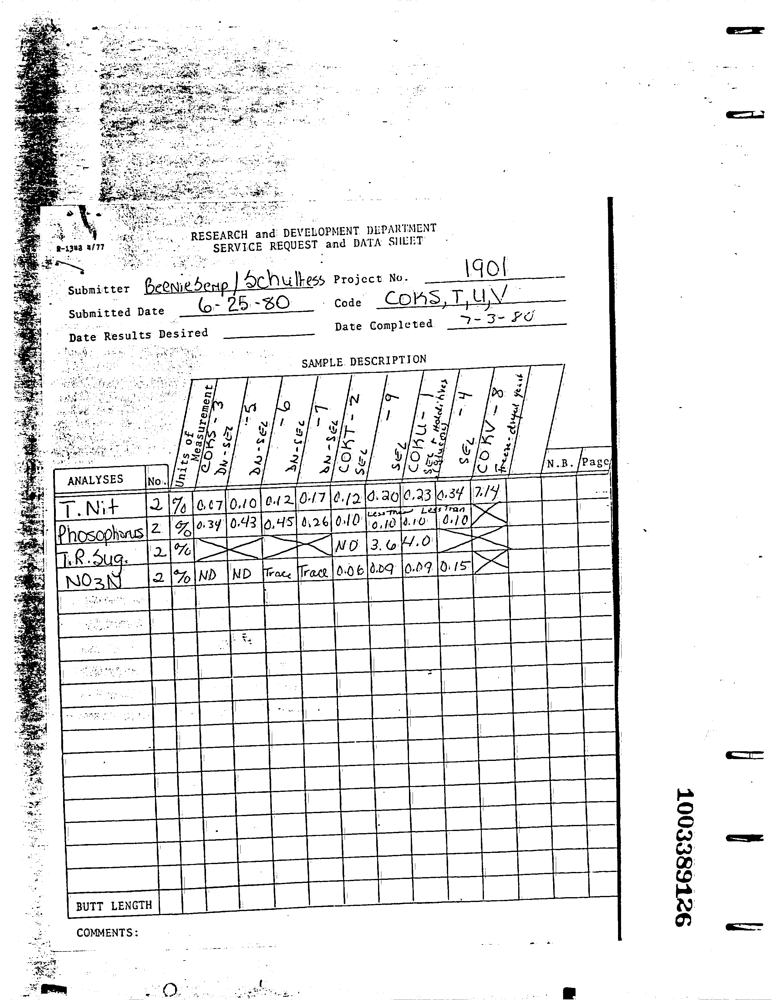 R-1343 4/77
RESEARCH and DEVELOPMENT DEPARTMENT
SERVICE REQUEST and DATA SHEET
Submitter Bernie Semp / Schultess Project No. 1901
Submitted Date 6-25-80 Code COKS, T, U, V
Date Results Desired Date Completed 7-3-80
SAMPLE DESCRIPTION
ANALYSES No. Units of Measurement COKS - 3 DN-SEL - 5 DN-SEL - 6 DN-SEL - 7 DN-SEL COKT - 2 SEL - 9 SEL COKU - 1 SEL + (glucose) - 4 SEL COKV - 8 freeze-dryed yeast N.B. Page
T. Nit 2 % 0.07 0.10 0.12 0.17 0.12 0.20 0.23 0.34 7.14
Phosophorus 2 % 0.34 0.43 0.45 0.26 0.10 Less Than 0.10 0.10 Less Than 0.10
T.R. Sug. 2 % ND 3.6 4.0
NO3N 2 % ND ND Trace Trace 0.06 0.09 0.09 0.15
BUTT LENGTH
COMMENTS:
1003389126